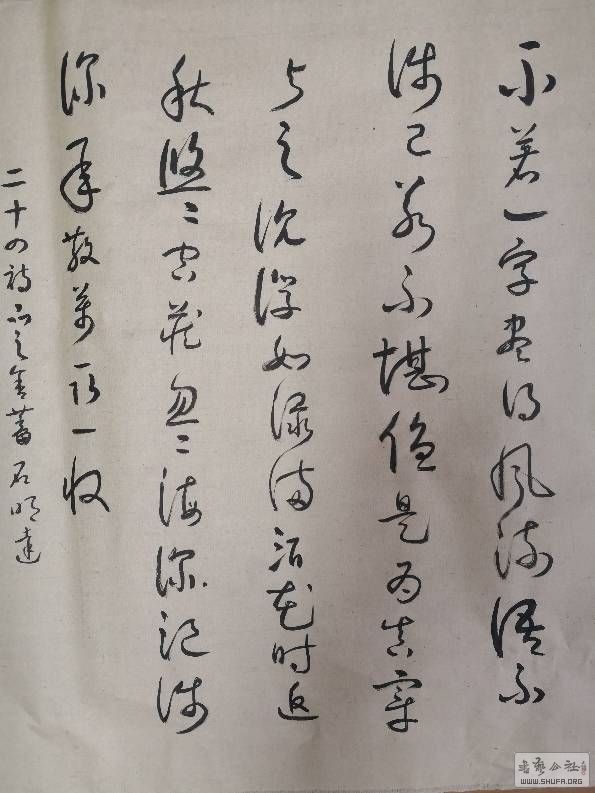 不著一字尽得风流语不
涉己若不堪忧是为真宰
与之沉浮如渌满酒花时返
秋悠〻空忽〻海浅
深聚散万取一收
二十四诗品之含蓄 石明达
书艺公社
WWW.SHUFA.ORG